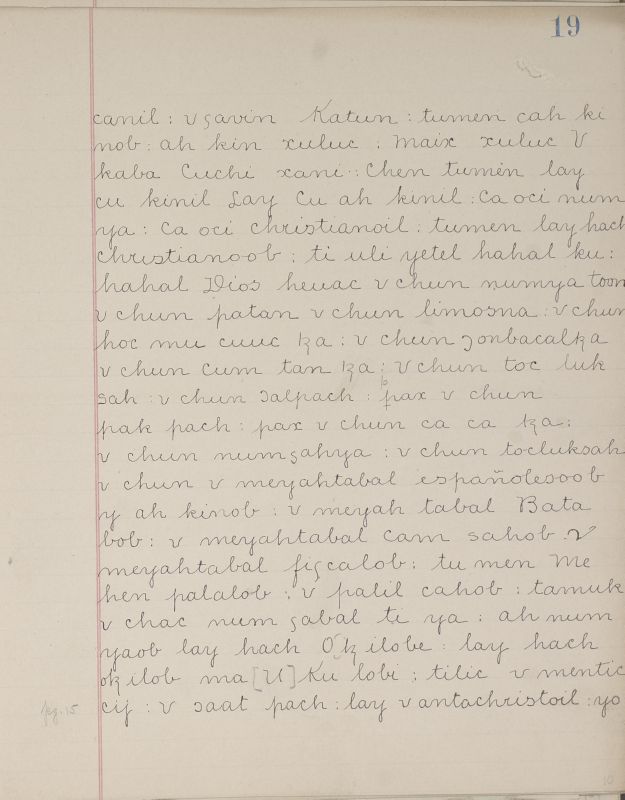 19
canil : v çavin Katun : tumen cah ki
nob : ah kin xuluc : maix xuluc V
kaba Cuchi xani : Chen tumen lay
cu kinil Lay Cu ah kinil : Ca oci num
ya : Ca oci christianoil : tumen lay hach
christianoob : ti uli yetel hahal ku :
hahal Dios heuac v chun numya toon
v chun patan v chun limosna : v chun
hoc mu cuuc tza : v chun ɔonbacaltza
v chun cum tan tza : v chun toc luk
sah : v chun ɔalpach : pax v chun
pak pach : pax v chun ca ca tza :
v chun numçahya : v chun tocluksah
v chun v meyahtabal españolesoob
y ah kinob : v meyah tabal Bata
bob : v meyahtabal Cam sahob v
meyahtabal fiscalob : tu men me
hen palalob : v palil cahob : tamuk
v chac num çabal ti ya : ah num
yaob lay hach Otzilobe : lay hach
otzilob ma [U] Ku lobi : tilic v mentic
cij : v saat pach : lay v antachristoil : yo
pg. 15